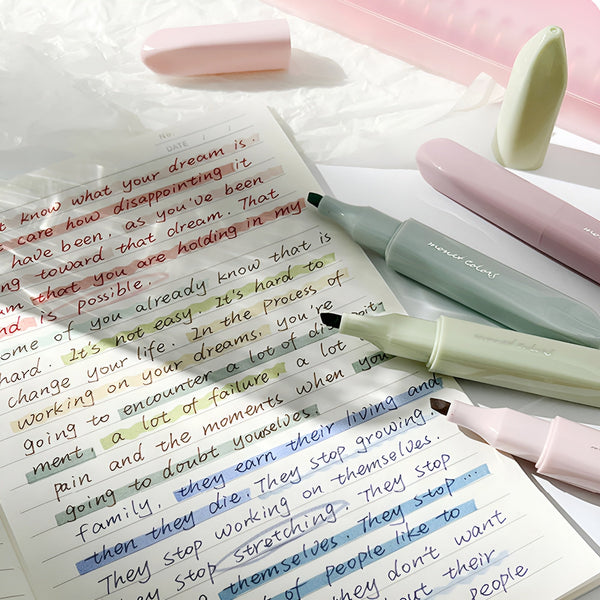 No.
DATE / /
t know what your dream is.
t care how disappointing it
have been. as you've been
ng toward that dream. That
um that you are holding in my
nd is possible.
ome of you already know that is
hard. It's not easy. It's hard to
change your life. In the process of
working on your dreams, you're
going to encounter a lot of disappoit
ment, a lot of failure. a lot
pain and the moments when you
going to doubt youselves.
family. they earn their living and
then they die. They stop growing.
They stop working on themselves.
They stop stretching. They stop
themselves. They stop...
of people like to
they don't want
out their
people